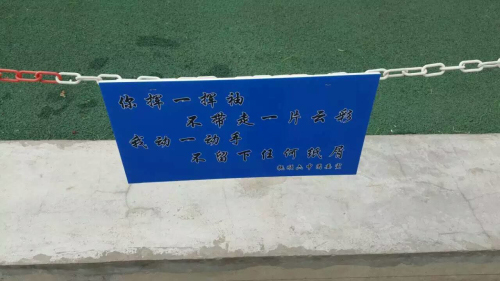 你挥一挥袖
不带走一片云彩
我动一动手
不留下任何纸屑